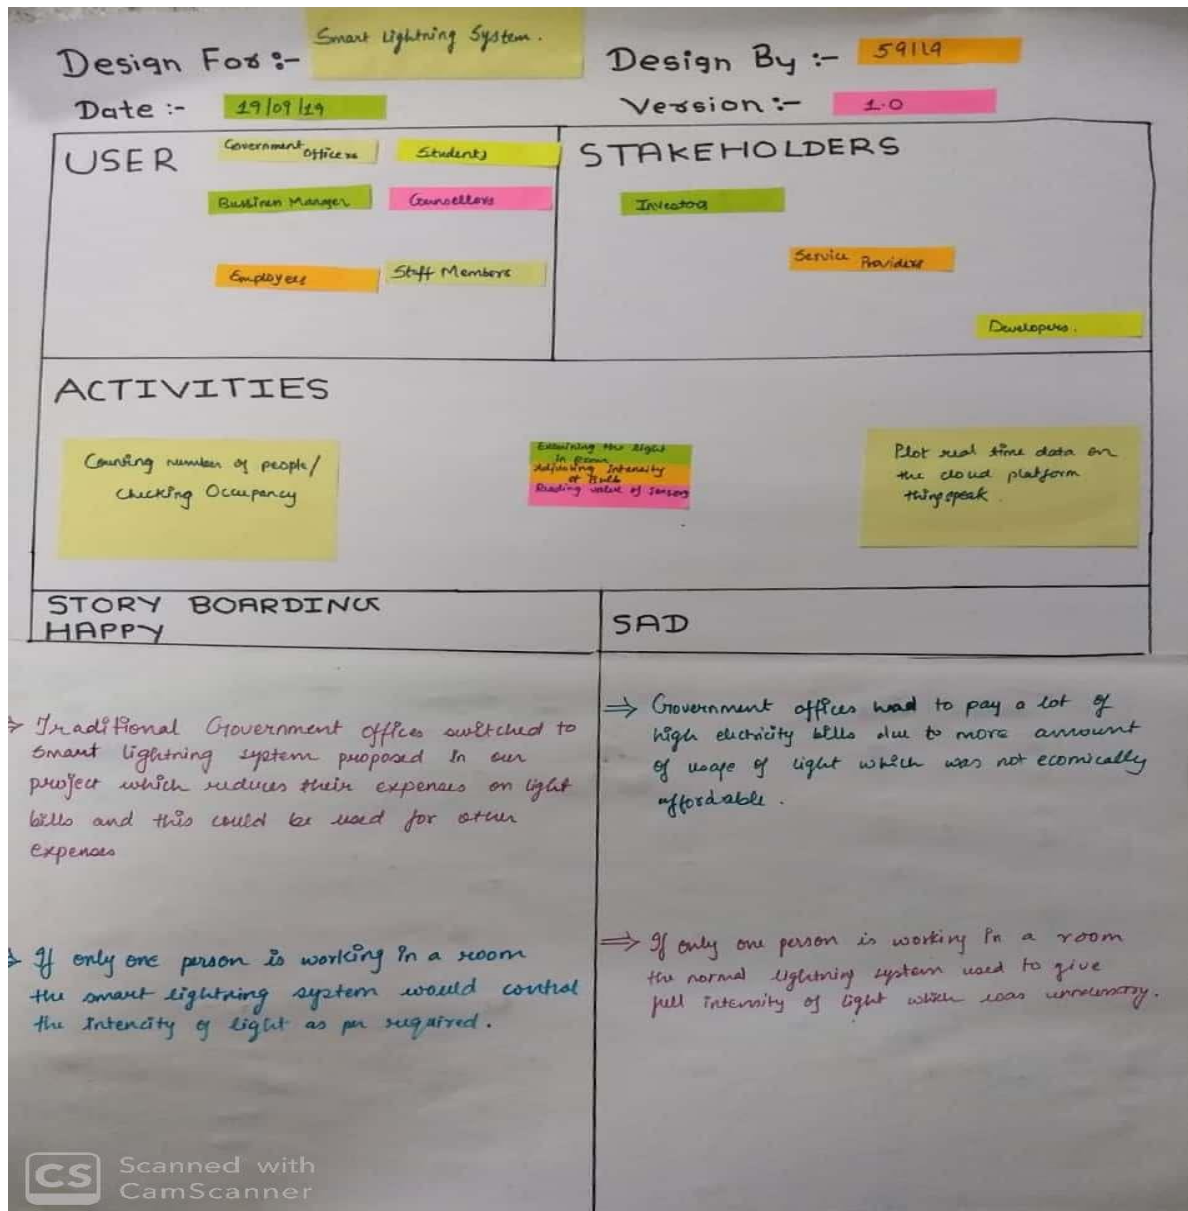 Design For :- Smart Lightning System.
Design By :- 59119
Date :- 19/09/19
Version :- 1.0
USER
Government Officers
Students
Bussiness Manager
Counsellors
Employees
Staff Members
STAKEHOLDERS
Investors
Service Providers
Developers.
ACTIVITIES
Counting number of people/
checking Occupancy
Examining the light
in Room
Adjusting Intensity
of Bulb
Reading value of sensors
Plot real time data on
the cloud platform
thingspeak.
STORY BOARDING
HAPPY
SAD
⇒ Traditional Government offices switched to
smart lightning system proposed in our
project which reduces their expenses on light
bills and this could be used for other
expenses
⇒ If only one person is working in a room
the smart lightning system would control
the intencity of light as per required.
⇒ Government offices had to pay a lot of
high electricity bills due to more amount
of usage of light which was not ecomically
affordable.
⇒ If only one person is working in a room
the normal lightning system used to give
full intensity of light which was unnecessary.
CS Scanned with
CamScanner